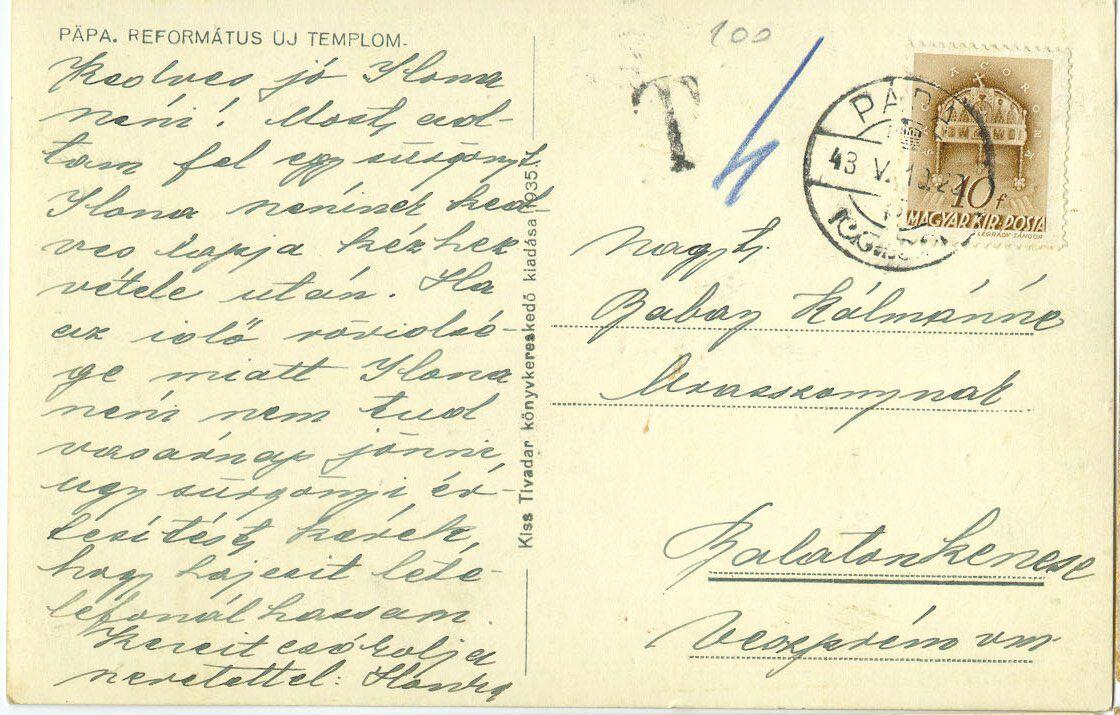 PÁPA. REFORMÁTUS ÚJ TEMPLOM.
Kedves jó Ilona
néni! Most ad-
tam fel egy sürgönyt
Ilona néninek ked-
ves lapja kézhez
vétele után. Ha
az idő rövidsé-
ge miatt Ilona
néni nem tud
vasárnap jönni
ugy sürgönyi ér-
tesítést kérek,
hogy Lajosit lete-
lefonálhassam.
Kezeit csókolja
szeretettel: Ilonka
Kiss Tivadar könyvkereskedő kiadása 1935.
100
T
PÁPA
43 V. 10.
10 f
MAGYAR KIR. POSTA
LÉGRÁDY SÁNDOR
Nagys.
Babay Kálmánné
Urasszonynak
Balatonkenese
Veszprém vm